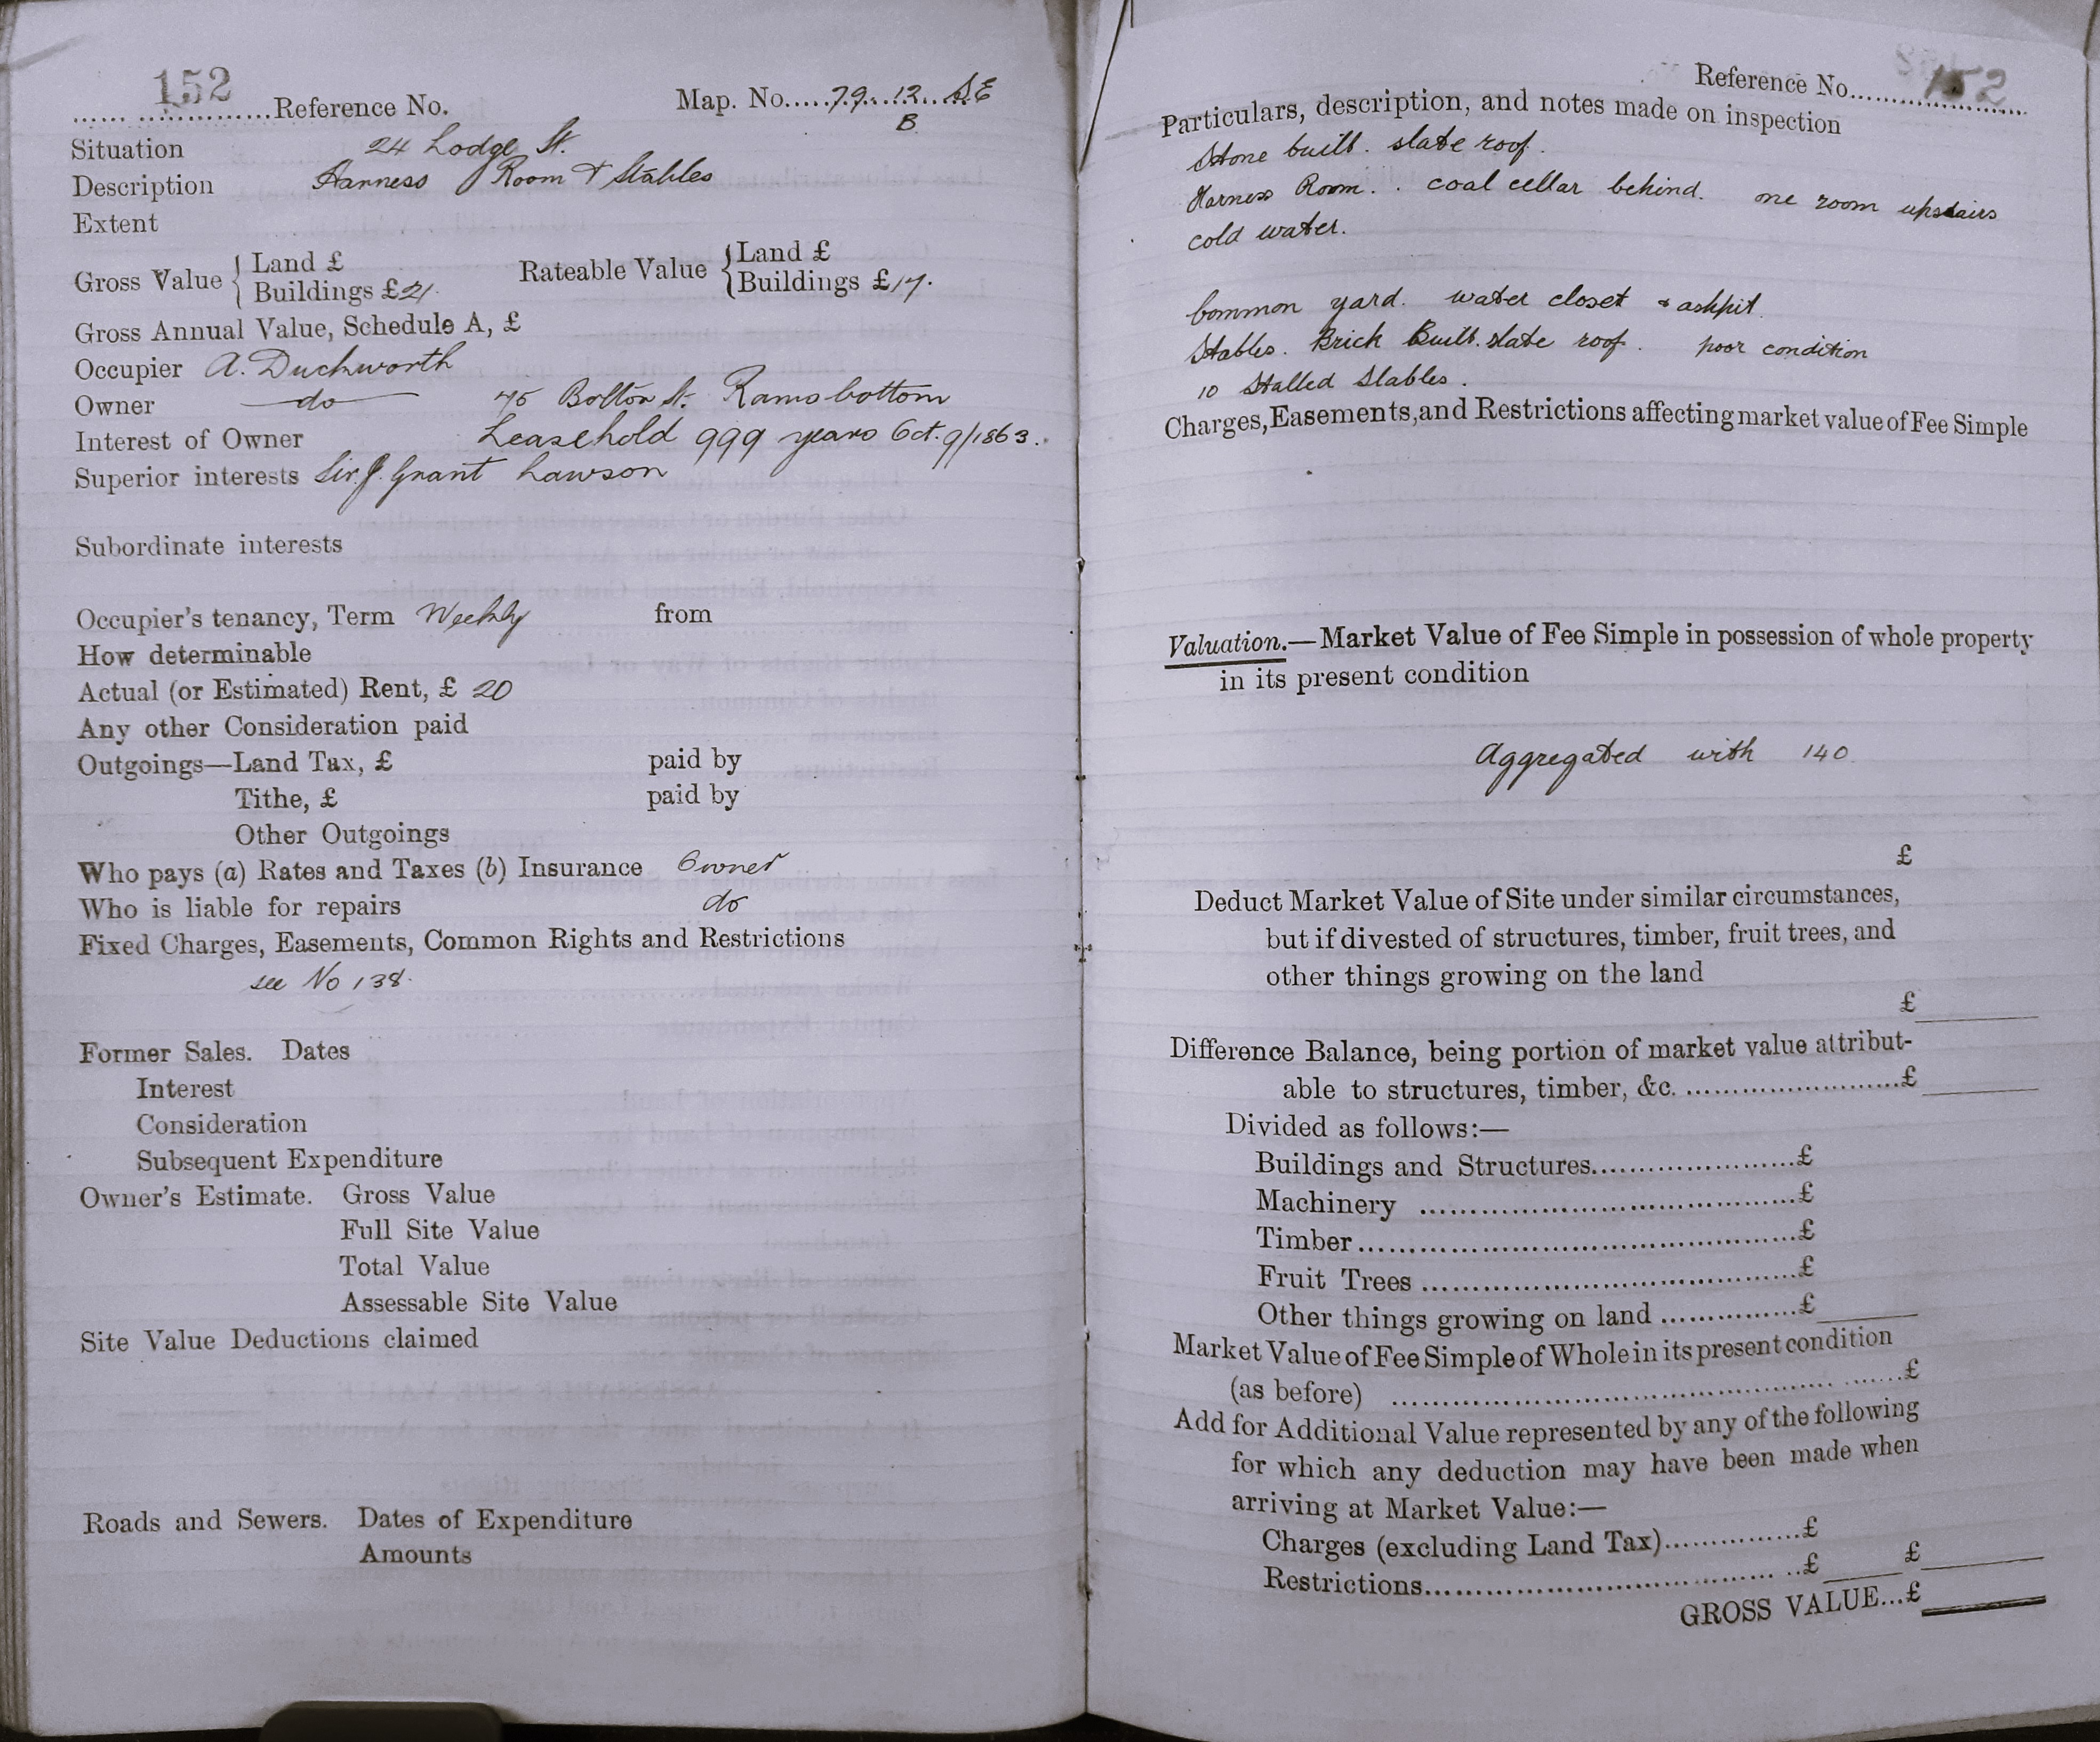 152
...... ...............Reference No. Map. No.....79...12....SE
B
Situation 24 Lodge St.
Description Harness Room & Stables
Extent
Gross Value { Land £
Buildings £21. Rateable Value { Land £
Buildings £17.
Gross Annual Value, Schedule A, £
Occupier A. Duckworth
Owner do 45 Bolton St. Ramsbottom
Interest of Owner Leasehold 999 years Oct. 9/1863.
Superior interests Sir. J. Grant Lawson
Subordinate interests
Occupier's tenancy, Term Weekly from
How determinable
Actual (or Estimated) Rent, £ 20
Any other Consideration paid
Outgoings—Land Tax, £ paid by
Tithe, £ paid by
Other Outgoings
Who pays (a) Rates and Taxes (b) Insurance Owner
Who is liable for repairs do
Fixed Charges, Easements, Common Rights and Restrictions
see No 138.
Former Sales. Dates
Interest
Consideration
Subsequent Expenditure
Owner's Estimate. Gross Value
Full Site Value
Total Value
Assessable Site Value
Site Value Deductions claimed
Roads and Sewers. Dates of Expenditure
Amounts
Reference No. 152
Particulars, description, and notes made on inspection
Stone built. slate roof.
Harness Room. . coal cellar behind. one room upstairs
cold water.
Common yard. water closet & ashpit.
Stables. Brick Built. slate roof. poor condition
10 Stalled Stables.
Charges, Easements, and Restrictions affecting market value of Fee Simple
Valuation.—Market Value of Fee Simple in possession of whole property
in its present condition
Aggregated with 140
£
Deduct Market Value of Site under similar circumstances,
but if divested of structures, timber, fruit trees, and
other things growing on the land
£
Difference Balance, being portion of market value attribut-
able to structures, timber, &c. .........................£
Divided as follows:—
Buildings and Structures.......................£
Machinery .........................................£
Timber................................................£
Fruit Trees .........................................£
Other things growing on land ...............£
Market Value of Fee Simple of Whole in its present condition
(as before) .......................................................£
Add for Additional Value represented by any of the following
for which any deduction may have been made when
arriving at Market Value:—
Charges (excluding Land Tax)...............£
Restrictions.........................................£ £
GROSS VALUE...£